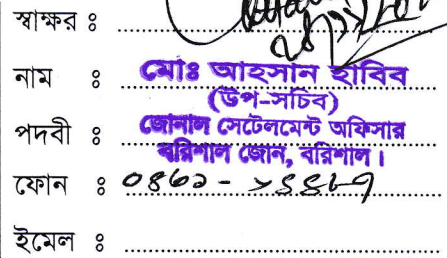 স্বাক্ষর ঃ
নাম ঃ মোঃ আহসান হাবিব
(উপ-সচিব)
পদবী ঃ জোনাল সেটেলমেন্ট অফিসার
বরিশাল জোন, বরিশাল।
ফোন ঃ ০৪৩১ -
ইমেল ঃ